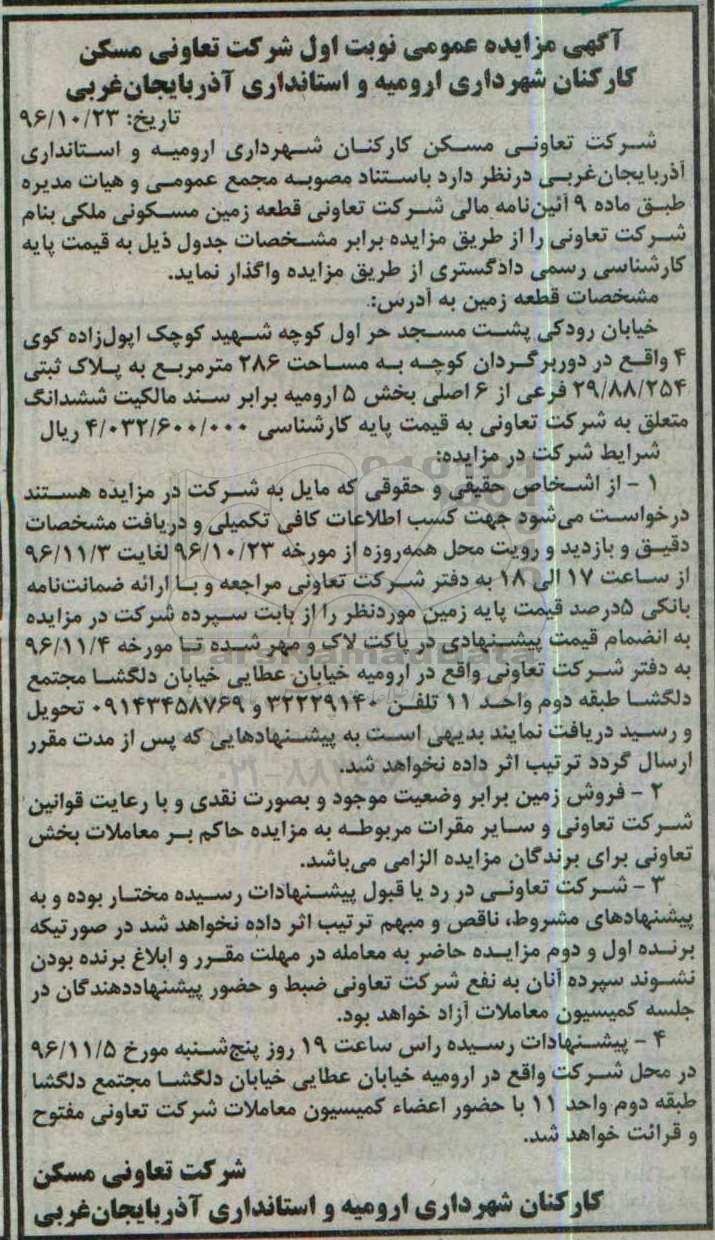 آگهی مزایده عمومی نوبت اول شرکت تعاونی مسکن
کارکنان شهرداری ارومیه و استانداری آذربایجان‌غربی
تاریخ: ۹۶/۱۰/۲۳
شرکت تعاونی مسکن کارکنان شهرداری ارومیه و استانداری
آذربایجان‌غربی درنظر دارد باستناد مصوبه مجمع عمومی و هیات مدیره
طبق ماده ۹ آئین‌نامه مالی شرکت تعاونی قطعه زمین مسکونی ملکی بنام
شرکت تعاونی را از طریق مزایده برابر مشخصات جدول ذیل به قیمت پایه
کارشناسی رسمی دادگستری از طریق مزایده واگذار نماید.
مشخصات قطعه زمین به آدرس:
خیابان رودکی پشت مسجد حر اول کوچه شهید کوچک اپول‌زاده کوی
۴ واقع در دوربرگردان کوچه به مساحت ۲۸۶ مترمربع به پلاک ثبتی
۲۹/۸۸/۲۵۴ فرعی از ۶ اصلی بخش ۵ ارومیه برابر سند مالکیت ششدانگ
متعلق به شرکت تعاونی به قیمت پایه کارشناسی ۴/۰۳۲/۶۰۰/۰۰۰ ریال
شرایط شرکت در مزایده:
۱ - از اشخاص حقیقی و حقوقی که مایل به شرکت در مزایده هستند
درخواست می‌شود جهت کسب اطلاعات کافی تکمیلی و دریافت مشخصات
دقیق و بازدید و رویت محل همه‌روزه از مورخه ۹۶/۱۰/۲۳ لغایت ۹۶/۱۱/۳
از ساعت ۱۷ الی ۱۸ به دفتر شرکت تعاونی مراجعه و با ارائه ضمانت‌نامه
بانکی ۵درصد قیمت پایه زمین موردنظر را از بابت سپرده شرکت در مزایده
به انضمام قیمت پیشنهادی در پاکت لاک و مهر شده تا مورخه ۹۶/۱۱/۴
به دفتر شرکت تعاونی واقع در ارومیه خیابان عطایی خیابان دلگشا مجتمع
دلگشا طبقه دوم واحد ۱۱ تلفن ۳۲۲۲۹۱۴۰ و ۰۹۱۴۳۴۵۸۷۶۹ تحویل
و رسید دریافت نمایند بدیهی است به پیشنهادهایی که پس از مدت مقرر
ارسال گردد ترتیب اثر داده نخواهد شد.
۲ - فروش زمین برابر وضعیت موجود و بصورت نقدی و با رعایت قوانین
شرکت تعاونی و سایر مقرات مربوطه به مزایده حاکم بر معاملات بخش
تعاونی برای برندگان مزایده الزامی می‌باشد.
۳ - شرکت تعاونی در رد یا قبول پیشنهادات رسیده مختار بوده و به
پیشنهادهای مشروط، ناقص و مبهم ترتیب اثر داده نخواهد شد در صورتیکه
برنده اول و دوم مزایده حاضر به معامله در مهلت مقرر و ابلاغ برنده بودن
نشوند سپرده آنان به نفع شرکت تعاونی ضبط و حضور پیشنهاددهندگان در
جلسه کمیسیون معاملات آزاد خواهد بود.
۴ - پیشنهادات رسیده راس ساعت ۱۹ روز پنج‌شنبه مورخ ۹۶/۱۱/۵
در محل شرکت واقع در ارومیه خیابان عطایی خیابان دلگشا مجتمع دلگشا
طبقه دوم واحد ۱۱ با حضور اعضاء کمیسیون معاملات شرکت تعاونی مفتوح
و قرائت خواهد شد.
شرکت تعاونی مسکن
کارکنان شهرداری ارومیه و استانداری آذربایجان‌غربی